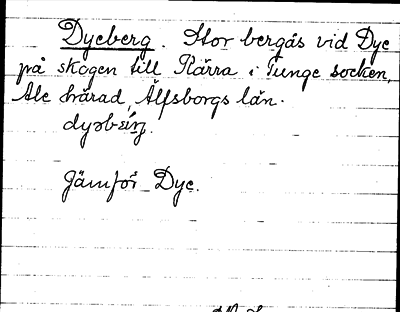 Dyeberg. Stor bergås vid Dye
på skogen till Kärra i Tunge socken,
Ale härad, Älfsborgs län.
Jämför Dye.